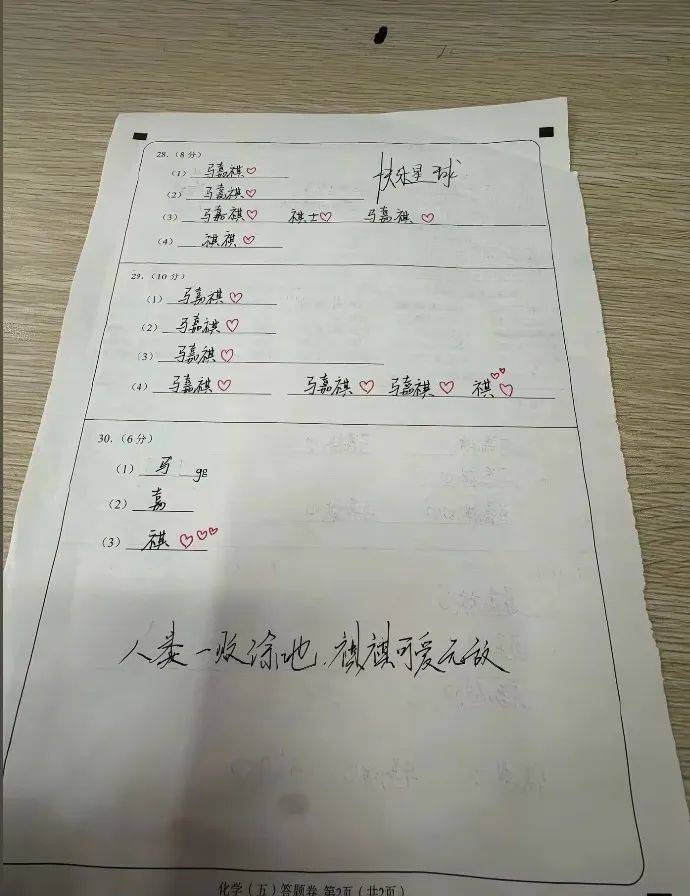 28.（8分）
（1）马嘉祺♡
（2）马嘉祺♡
快处星球
（3）马嘉祺♡ 祺士♡ 马嘉祺♡
（4）祺祺♡
29.（10分）
（1）马嘉祺♡
（2）马嘉祺♡
（3）马嘉祺♡
（4）马嘉祺♡ 马嘉祺♡ 马嘉祺♡ 祺♡♡♡
30.（6分）
（1）马 gg
（2）嘉
（3）祺♡♡♡
人类一败涂地，祺祺可爱无敌
化学（五）答题卷 第2页（共2页）